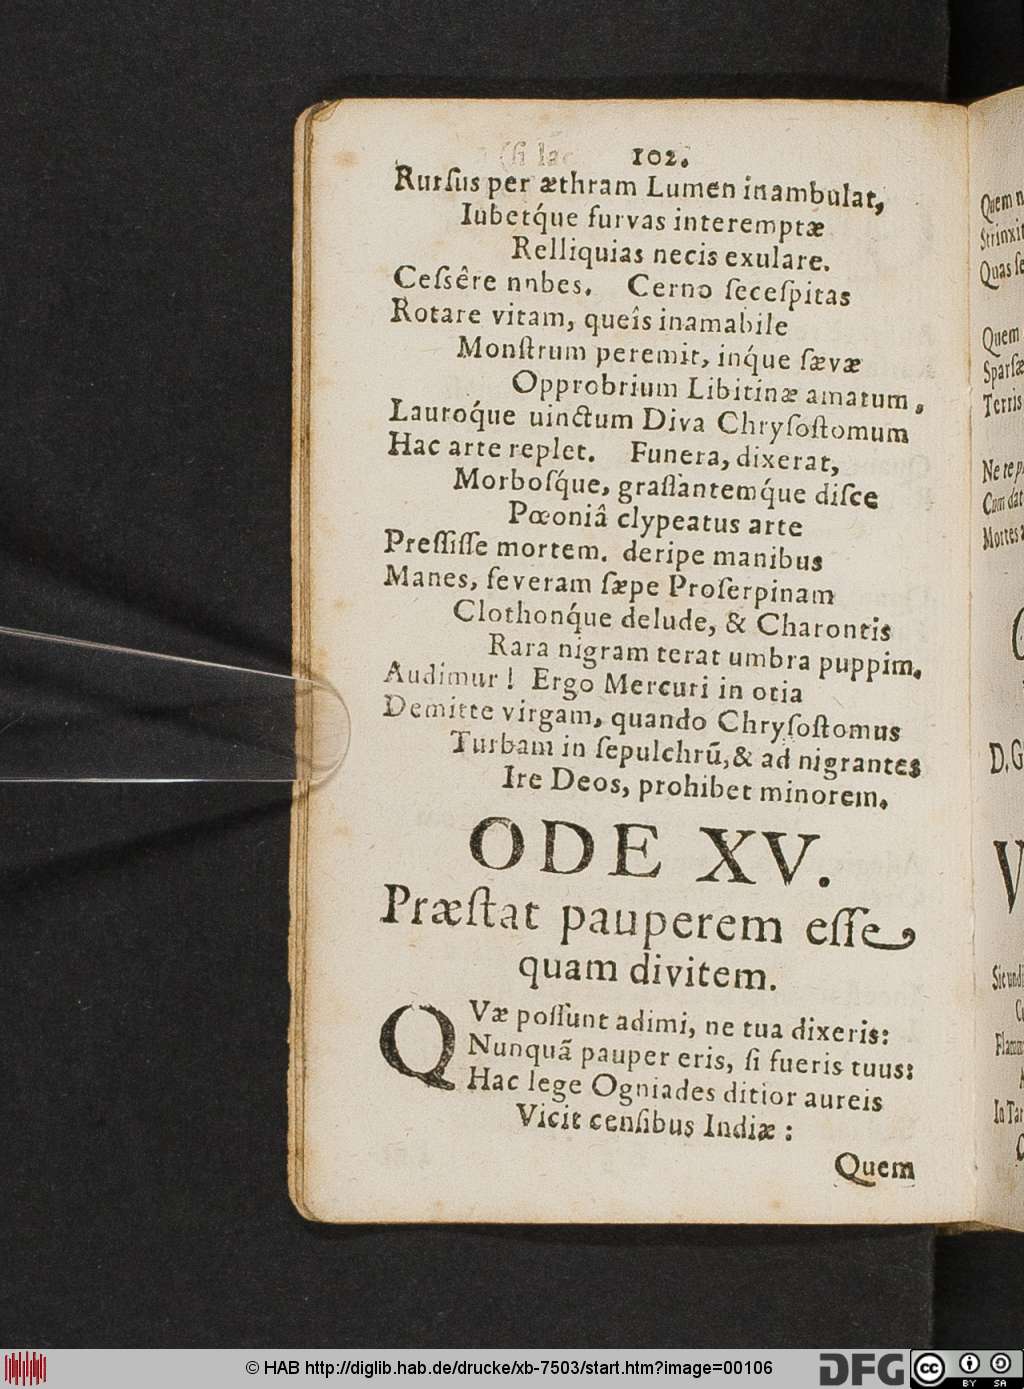 102.
Rurſus per æthram Lumen inambulat,
Iubetq́ue furvas interemptæ
Relliquias necis exulare.
Ceſsêre nnbes. Cerno ſeceſpitas
Rotare vitam, queîs inamabile
Monſtrum peremit, inq́ue ſævæ
Opprobrium Libitinæ amatum,
Lauroq́ue uinctum Diva Chryſoſtomum
Hac arte replet. Funera, dixerat,
Morboſq́ue, graſſantemq́ue diſce
Pœoniâ clypeatus arte
Preſſiſſe mortem. deripe manibus
Manes, ſeveram ſæpe Proſerpinam
Clothonq́ue delude, & Charontis
Rara nigram terat umbra puppim.
Audimur! Ergo Mercuri in otia
Demitte virgam, quando Chryſoſtomus
Turbam in ſepulchrū, & ad nigrantes
Ire Deos, prohibet minorem.
ODE XV.
Præſtat pauperem eſſe
quam divitem.
QVæ poſſunt adimi, ne tua dixeris:
Nunquã pauper eris, ſi fueris tuus:
Hac lege Ogniades ditior aureis
Vicit cenſibus Indiæ:
Quem
Quem
Strinxit
Quem
Sparſæ
Terris
Ne te
Mortes
D. G
© HAB http://diglib.hab.de/drucke/xb-7503/start.htm?image=00106
DFG
cc
BY SA